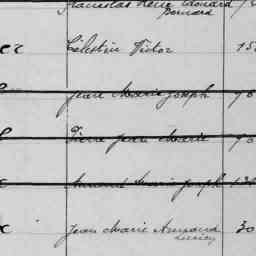 Stanislas René Edouard
Bernard
er Célestin Victor 15
Jean Marie Joseph 90
Pierre Jean Marie 90
Armand Marie Joseph 130
x Jean Marie Armand 30